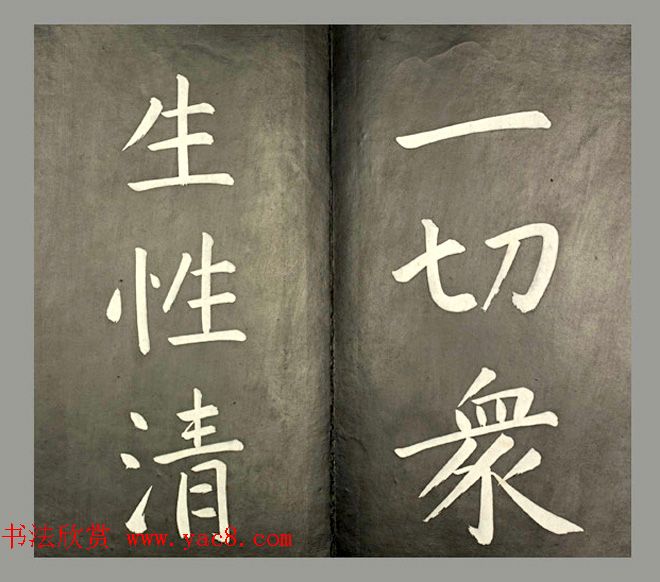 一切衆
生性清
书法欣赏 www.yac8.com